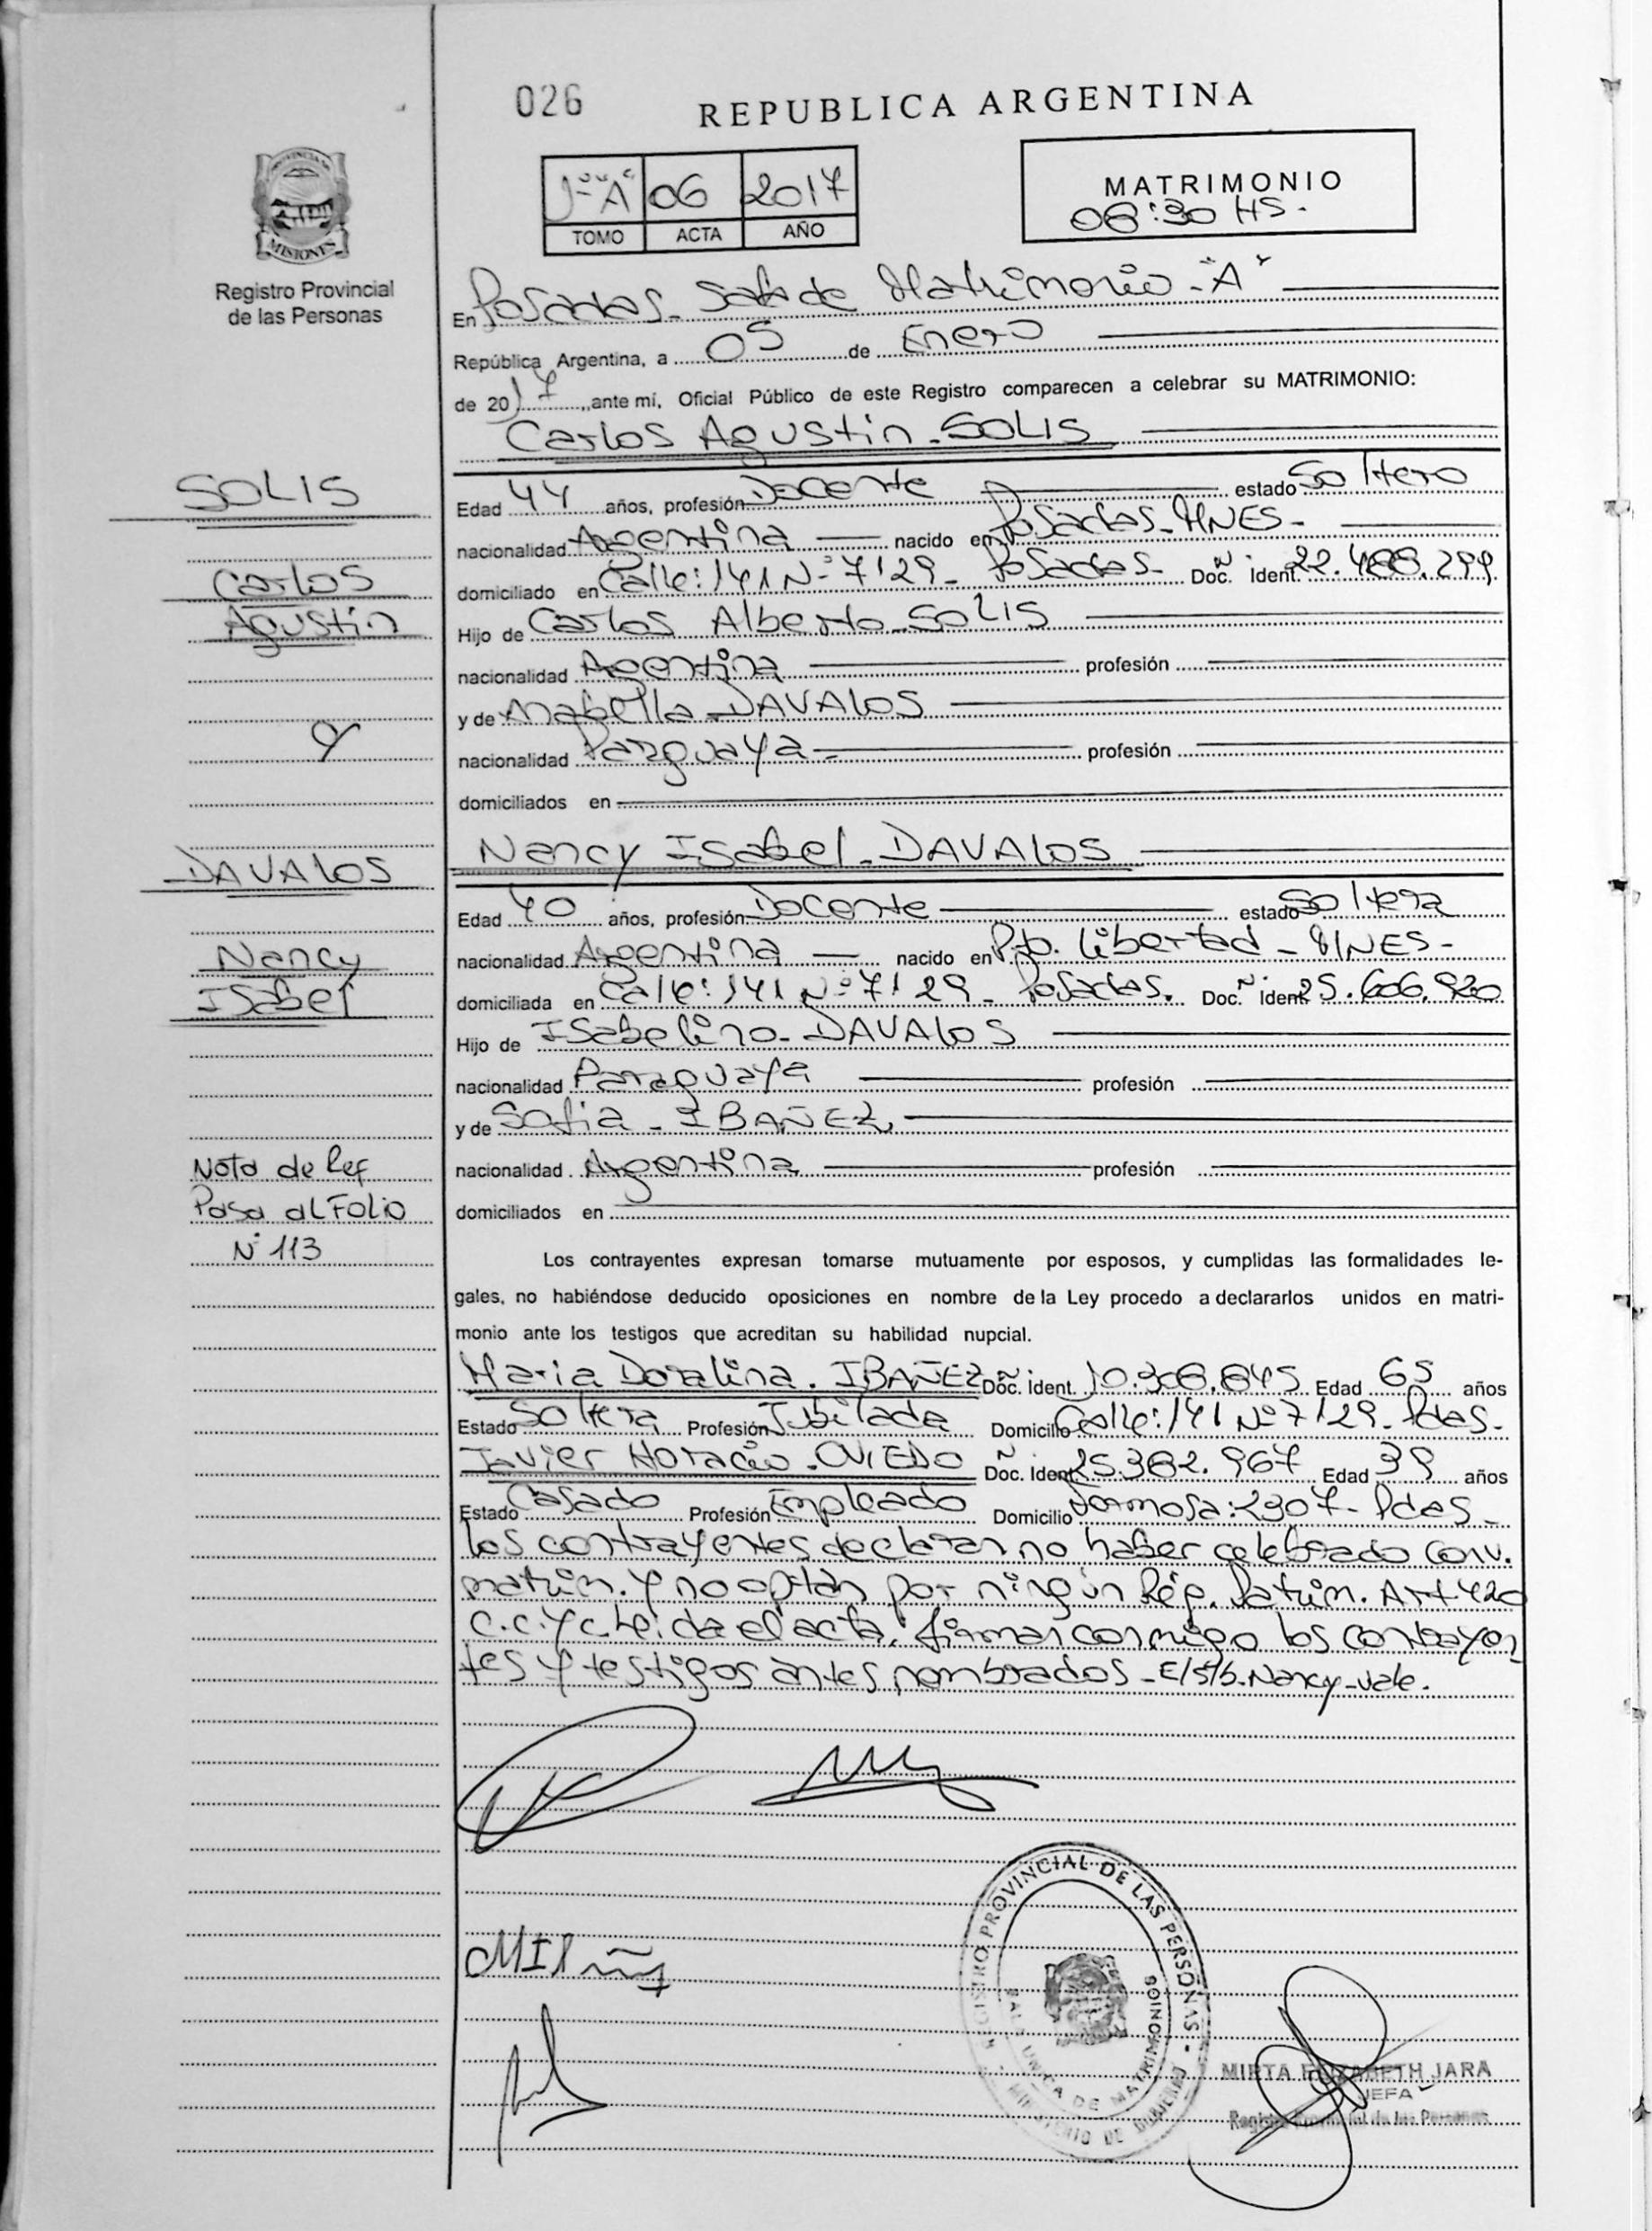 026
REPUBLICA ARGENTINA
PROVINCIA DE
MISIONES
Registro Provincial
de las Personas
1º "A" 06 2017
TOMO ACTA AÑO
MATRIMONIO
08:30 HS.
En Posadas - Sala de Matrimonio - "A"
República Argentina, a 05 de Enero
de 2017, ante mí, Oficial Público de este Registro comparecen a celebrar su MATRIMONIO:
Carlos Agustin - SOLIS
SOLIS
Carlos
Agustin
y
DAVALOS
Nancy
Isabel
Nota de Ref
Pasa al Folio
Nº 113
Edad 44 años, profesión Docente estado Soltero
nacionalidad Argentina nacido en Posadas - MNES -
domiciliado en Calle: 141 Nº 7129 - Posadas - Doc. Ident. 22.488.299
Hijo de Carlos Alberto - SOLIS
nacionalidad Argentina profesión
y de Mabella - DAVALOS
nacionalidad Parguaya - profesión
domiciliados en
Nancy Isabel - DAVALOS
Edad 40 años, profesión Docente estado Soltera
nacionalidad Argentina nacido en Pto. Libertad - MNES -
domiciliada en Calle: 141 Nº 7129 - Posadas. Doc. Ident. 25.606.920
Hijo de Isabelino - DAVALOS
nacionalidad Paraguaya profesión
y de Sofia - IBAÑEZ
nacionalidad Argentina profesión
domiciliados en
Los contrayentes expresan tomarse mutuamente por esposos, y cumplidas las formalidades le-
gales, no habiéndose deducido oposiciones en nombre de la Ley procedo a declararlos unidos en matri-
monio ante los testigos que acreditan su habilidad nupcial.
Maria Doralina. IBAÑEZ Doc. Ident. 10.308.845 Edad 65 años
Estado Soltera Profesión Jubilada Domicilio Calle: 141 Nº 7129 - Pdas -
Javier Horacio. OVIEDO Doc. Ident. 25.382.967 Edad 39 años
Estado Casado Profesión Empleado Domicilio Formosa: 2307 - Pdas -
Los contrayentes declaran no haber celebrado Conv.
matrim. y no optan por ningún Rég. Patrim. Art 420
C.C.y C. Leida el acta, firman conmigo los contrayen
tes y testigos antes nombrados - E/s/b. Nancy - vale.
REGISTRO PROVINCIAL DE LAS PERSONAS -
SALA UNICA DE MATRIMONIOS
MINISTERIO DE GOBIERNO
MIRTA ELIZABETH JARA
JEFA
Registro Provincial de las Personas